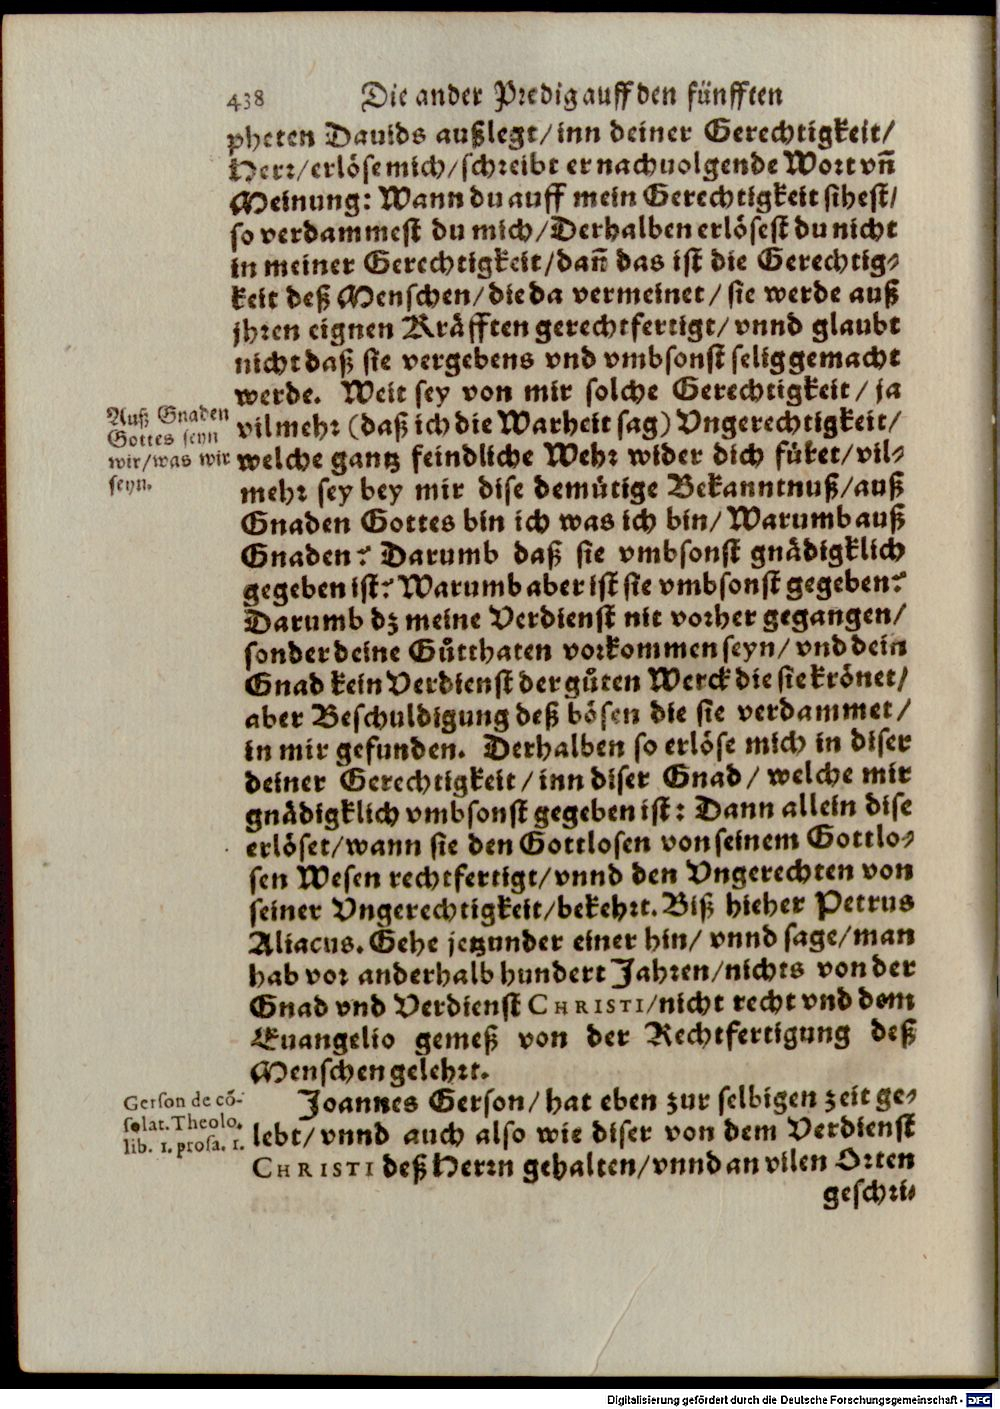 438 Die ander Predig auff den fünfften
pheten Dauids außlegt/inn deiner Gerechtigkeit/
Herr/erlöse mich/schreibt er nachuolgende Wort vñ
Meinung: Wann du auff mein Gerechtigkeit sihest/
so verdammest du mich/Derhalben erlösest du nicht
in meiner Gerechtigkeit/dañ das ist die Gerechtig-
keit deß Menschen/die da vermeinet/sie werde auß
jhren eignen Kräfften gerechtfertigt/vnnd glaubt
nicht daß sie vergebens vnd vmbsonst selig gemacht
werde. Weit sey von mir solche Gerechtigkeit/ja
vilmehr (daß ich die Warheit sag) Vngerechtigkeit/
welche gantz feindliche Wehr wider dich füret/vil-
mehr sey bey mir dise demütige Bekanntnuß/auß
Gnaden Gottes bin ich was ich bin/Warumb auß
Gnaden? Darumb daß sie vmbsonst gnädigklich
gegeben ist? Warumb aber ist sie vmbsonst gegeben?
Darumb dz meine Verdienst nit vorher gegangen/
sonder deine Gůtthaten vorkommen seyn/vnd dein
Gnad kein Verdienst der gůten Werck die sie krönet/
aber Beschuldigung deß bösen die sie verdammet/
in mir gefunden. Derhalben so erlöse mich in diser
deiner Gerechtigkeit/inn diser Gnad/welche mir
gnädigklich vmbsonst gegeben ist: Dann allein dise
erlöset/wann sie den Gottlosen von seinem Gottlo-
sen Wesen rechtfertigt/vnnd den Vngerechten von
seiner Vngerechtigkeit/bekehrt. Biß hieher Petrus
Aliacus. Gehe jetzunder einer hin/vnnd sage/man
hab vor anderhalb hundert Jahren/nichts von der
Gnad vnd Verdienst CHRISTI/nicht recht vnd dem
Euangelio gemeß von der Rechtfertigung deß
Menschen gelehrt.
Joannes Gerson/hat eben zur selbigen zeit ge-
lebt/vnnd auch also wie diser von dem Verdienst
CHRISTI deß Herrn gehalten/vnnd an vilen Orten
geschri-
Auß Gnaden
Gottes seyn
wir/was wir
seyn.
Gerson de cõ-
solat. Theolo.
lib. 1. prosa. 1.
Digitalisierung gefördert durch die Deutsche Forschungsgemeinschaft - DFG